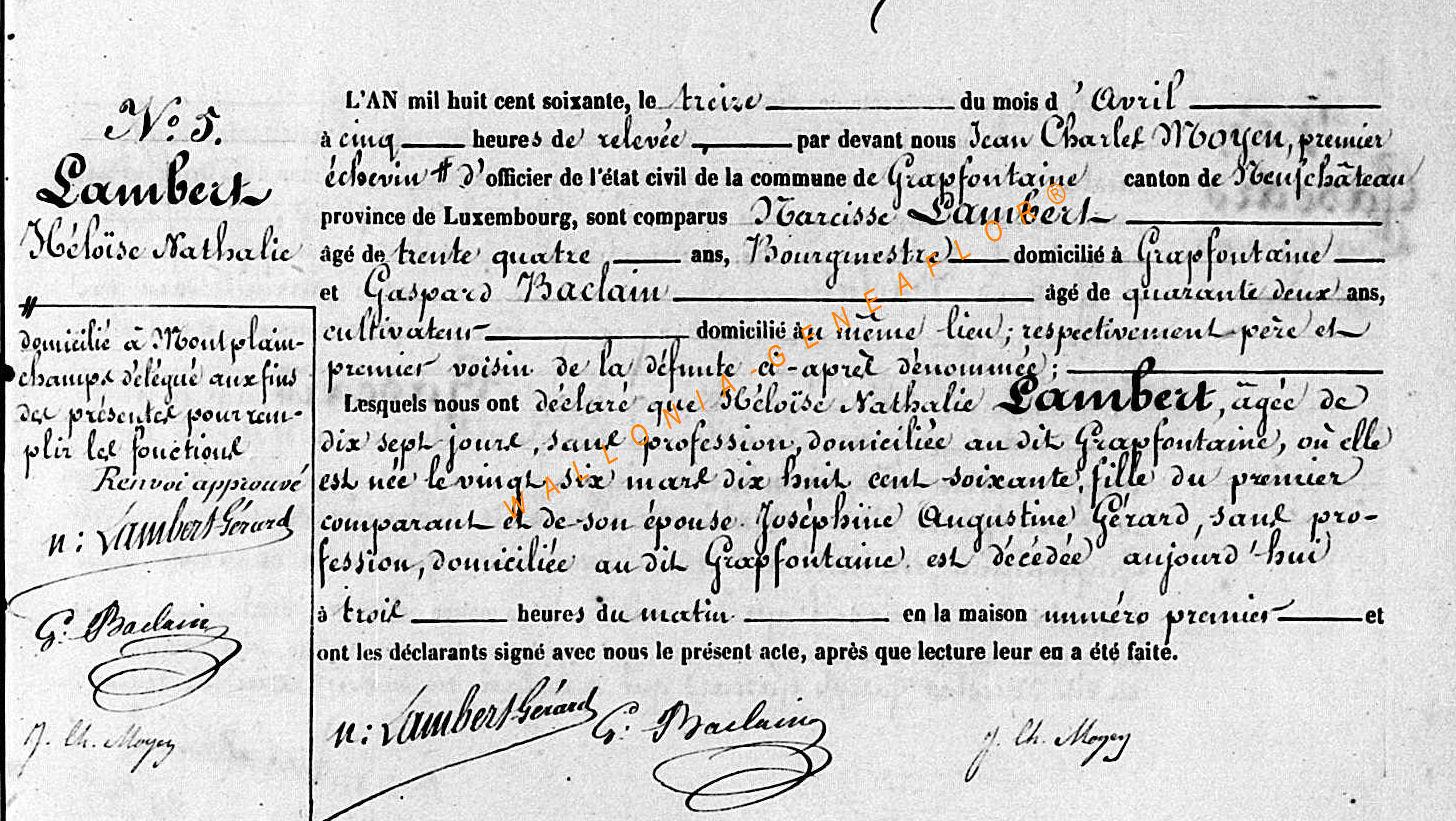 N.o 5.
Lambert
Héloïse Nathalie
#
domicilié à Montplain-
champs délégué aux fins
des présentes pour rem-
plir les fonctions
Renvoi approuvé
n: Lambert Gérard
G.d Baclain
J. Ch. Moyen
L'AN mil huit cent soixante, le treize du mois d'Avril
à cinq heures de relevée, par devant nous Jean Charles Moyen, premier
échevin # d'officier de l'état civil de la commune de Grapfontaine canton de Neufchâteau
province de Luxembourg, sont comparus Narcisse Lambert
âgé de trente quatre ans, Bourgmestre domicilié à Grapfontaine
et Gaspard Baclain âgé de quarante deux ans,
cultivateur domicilié au même lieu; respectivement père et
premier voisin de la défunte ci-après dénommée;
Lesquels nous ont déclaré que Héloïse Nathalie Lambert, âgée de
dix sept jours, sans profession, domiciliée au dit Grapfontaine, où elle
est née le vingt six mars dix huit cent soixante, fille du premier
comparant et de son épouse Joséphine Augustine Gérard, sans pro-
fession, domiciliée au dit Grapfontaine est décédée aujourd'hui
à trois heures du matin en la maison numéro premier et
ont les déclarants signé avec nous le présent acte, après que lecture leur en a été faite.
n: Lambert Gérard G.d Baclain J. Ch. Moyen
WALLONIA-GENEAFLOR®